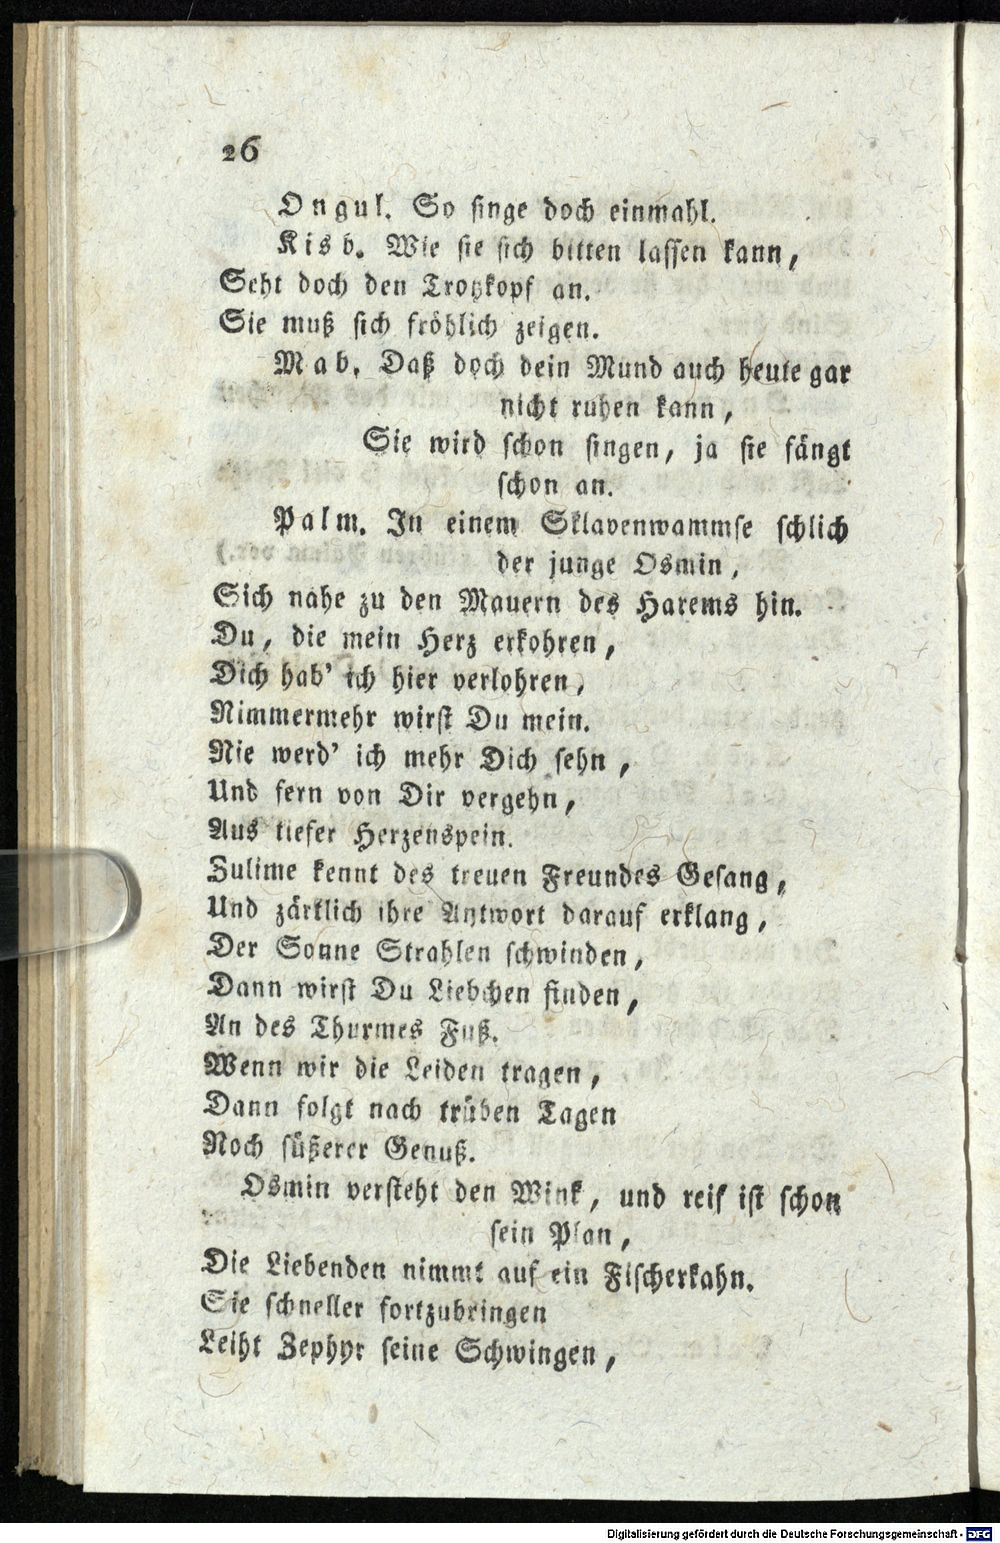 26
Ongul. So singe doch einmahl.
Kisb. Wie sie sich bitten lassen kann,
Seht doch den Trotzkopf an.
Sie muß sich fröhlich zeigen.
Mab. Daß doch dein Mund auch heute gar
nicht ruhen kann,
Sie wird schon singen, ja sie fängt
schon an.
Palm. In einem Sklavenwammse schlich
der junge Osmin,
Sich nahe zu den Mauern des Harems hin.
Du, die mein Herz erkohren,
Dich hab' ich hier verlohren,
Nimmermehr wirst Du mein.
Nie werd' ich mehr Dich sehn,
Und fern von Dir vergehn,
Aus tiefer Herzenspein.
Zulime kennt des treuen Freundes Gesang,
Und zärtlich ihre Antwort darauf erklang,
Der Sonne Strahlen schwinden,
Dann wirst Du Liebchen finden,
An des Thurmes Fuß.
Wenn wir die Leiden tragen,
Dann folgt nach trüben Tagen
Noch süßerer Genuß.
Osmin versteht den Wink, und reif ist schon
sein Plan,
Die Liebenden nimmt auf ein Fischerkahn.
Sie schneller fortzubringen
Leiht Zephyr seine Schwingen,
Digitalisierung gefördert durch die Deutsche Forschungsgemeinschaft - DFG